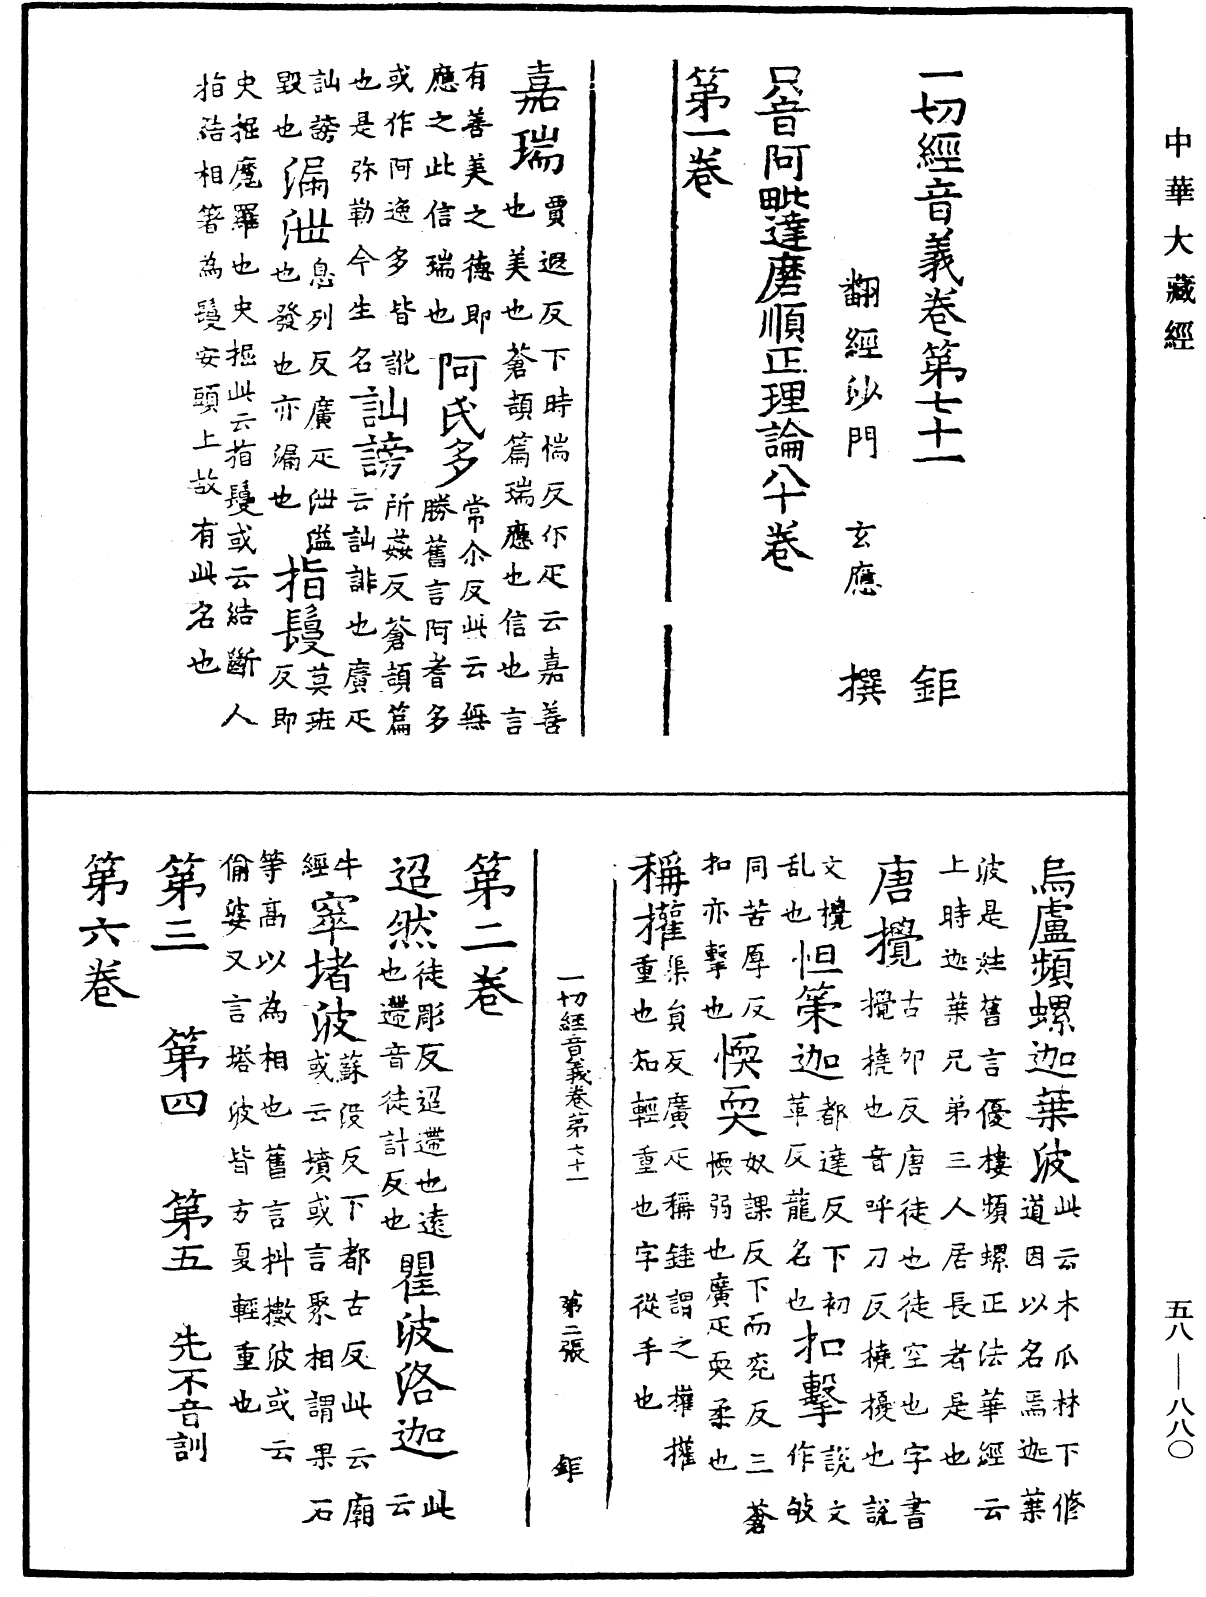 中華大藏經
一切經音義卷第七十一 鉅
翻經沙門 玄應 撰
只音阿毗達磨順正理論八十卷
第一卷
嘉瑞賈遐反下時惴反尒疋云嘉善
也美也蒼頡篇瑞應也信也言
有善美之德即
應之此信瑞也阿氏多常尒反此云無
勝舊言阿耆多
或作阿逸多皆訛
也是弥勒今生名訕謗所姦反蒼頡篇
云訕誹也廣疋
訕謗
毀也漏泄息列反廣疋泄溢
也發也亦漏也指鬘莫班
反即
史掘魔羅也史掘此云指鬘或云結斷人
指結相著為鬘安頭上故有此名也
烏盧頻螺迦葉波此云木瓜林下修
道因以名焉迦葉
波是姓舊言優樓頻螺正法華經云
上時迦葉兄弟三人居長者是也
唐攪古卯反唐徒也徒空也字書
攪撓也音呼刀反撓擾也說
文攪
乱也怛策迦都達反下初
革反龍名也扣擊說文
作敂
同苦厚反三蒼
扣亦擊也愞耎奴課反下而兖反
愞弱也廣疋耎柔也
稱權渠員反廣疋稱錘謂之權權
重也知輕重也字從手也
一切經音義卷第七十一 第二張 鉅
第二卷
迢然徒彫反迢遰也遠
也遰音徒計反也瞿波洛迦此
云
牛
經窣堵波蘇没反下都古反此云廟
或云墳或言聚相謂果石
等高以為相也舊言抖擻波或云
偷婆又言塔波皆方夏輕重也
第三 第四 第五 先不音訓
第六卷
五八—八八〇